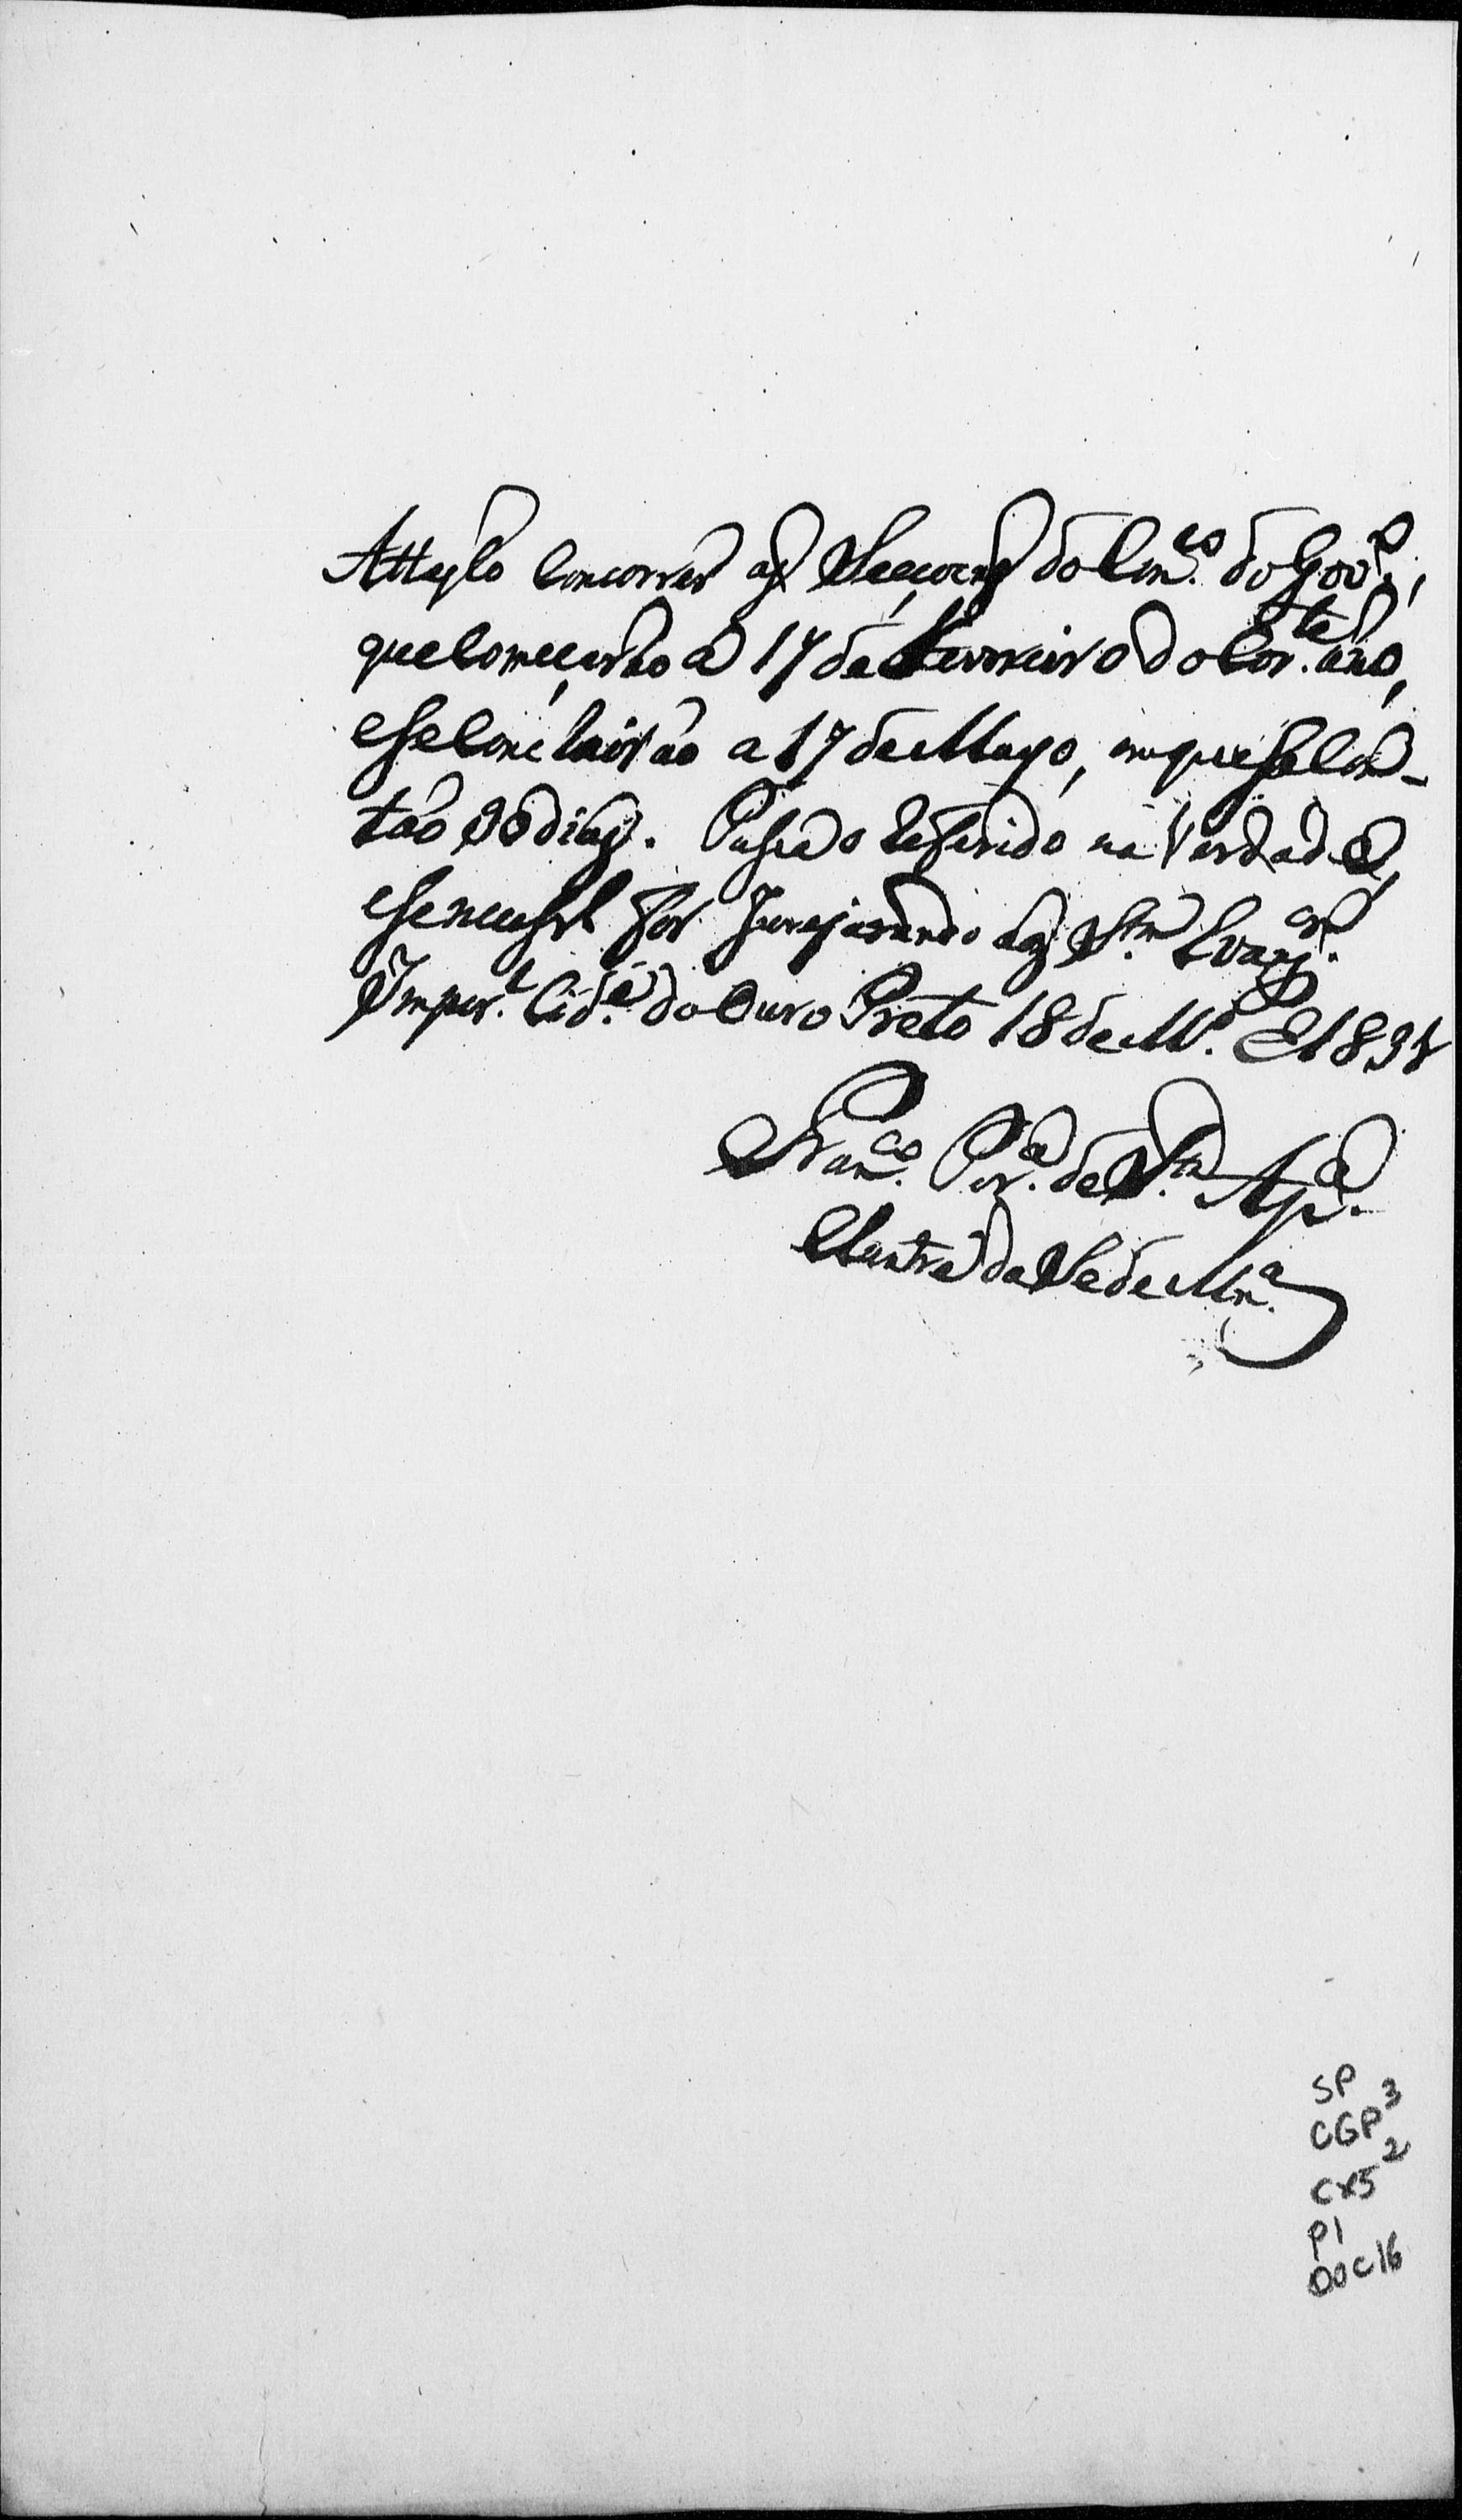 Attesto concorrer as Secçoens do Con.co do Gov.o,
que começarão a 17 de Fevereiro do Cor.te ano,
e se concluirão a 17 de Mayo, em que se con-
tão 90 dias. Passa o referido na Verdade,
e se necessr.
Imper.l Cid.e do Ouro Preto 18 de M.o 1831
Fran.co Per.a de S.ta Ap.a
Chantre da Se de Mn.a
SP
CGP3
CX5 2
P1
DOC16